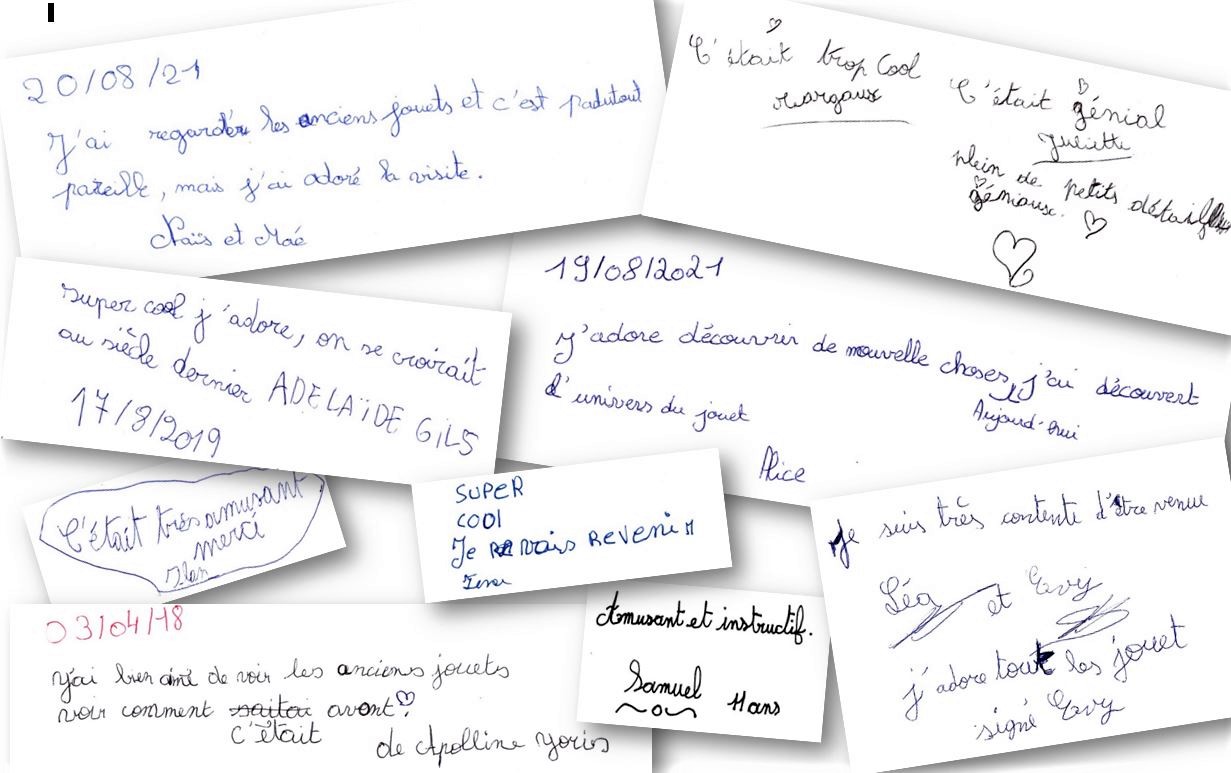 20/08/21
J'ai regardér les anciens jouets et c'est padutout
pareille, mais j'ai adoré la visite.
Naïs et Maé
C'était trop Cool
Margaux
C'était génial
Juliette
plein de petits détails
géniaux.
super cool j'adore, on se croirait
au siècle dernier ADELAÏDE GILS
17/8/2019
19/08/2021
J'adore découvrir de nouvelle choses, j'ai découvert
Aujourd'hui
d'univers du jouet
Alice
C'était très amusant
merci
Ilan
SUPER
COOl
Je vais REVENIR
03/04/18
J'ai bien aimé de voir les anciens jouets
voir comment avant
c'était
de Apolline Yoris
Amusant et instructif.
Samuel 11ans
Je suis très contente d'être venue
Léa et Evy
j'adore tout les jouet
signé Evy